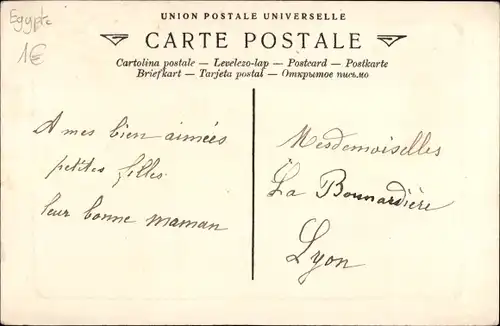 Egypte
1€
UNION POSTALE UNIVERSELLE
CARTE POSTALE
Cartolina postale — Levelezo-lap — Postcard — Postkarte
Briefkart — Tarjeta postal — Открытое письмо
A mes bien aimées
petites filles
leur bonne maman
Mesdemoiselles
La Bonnardière
Lyon